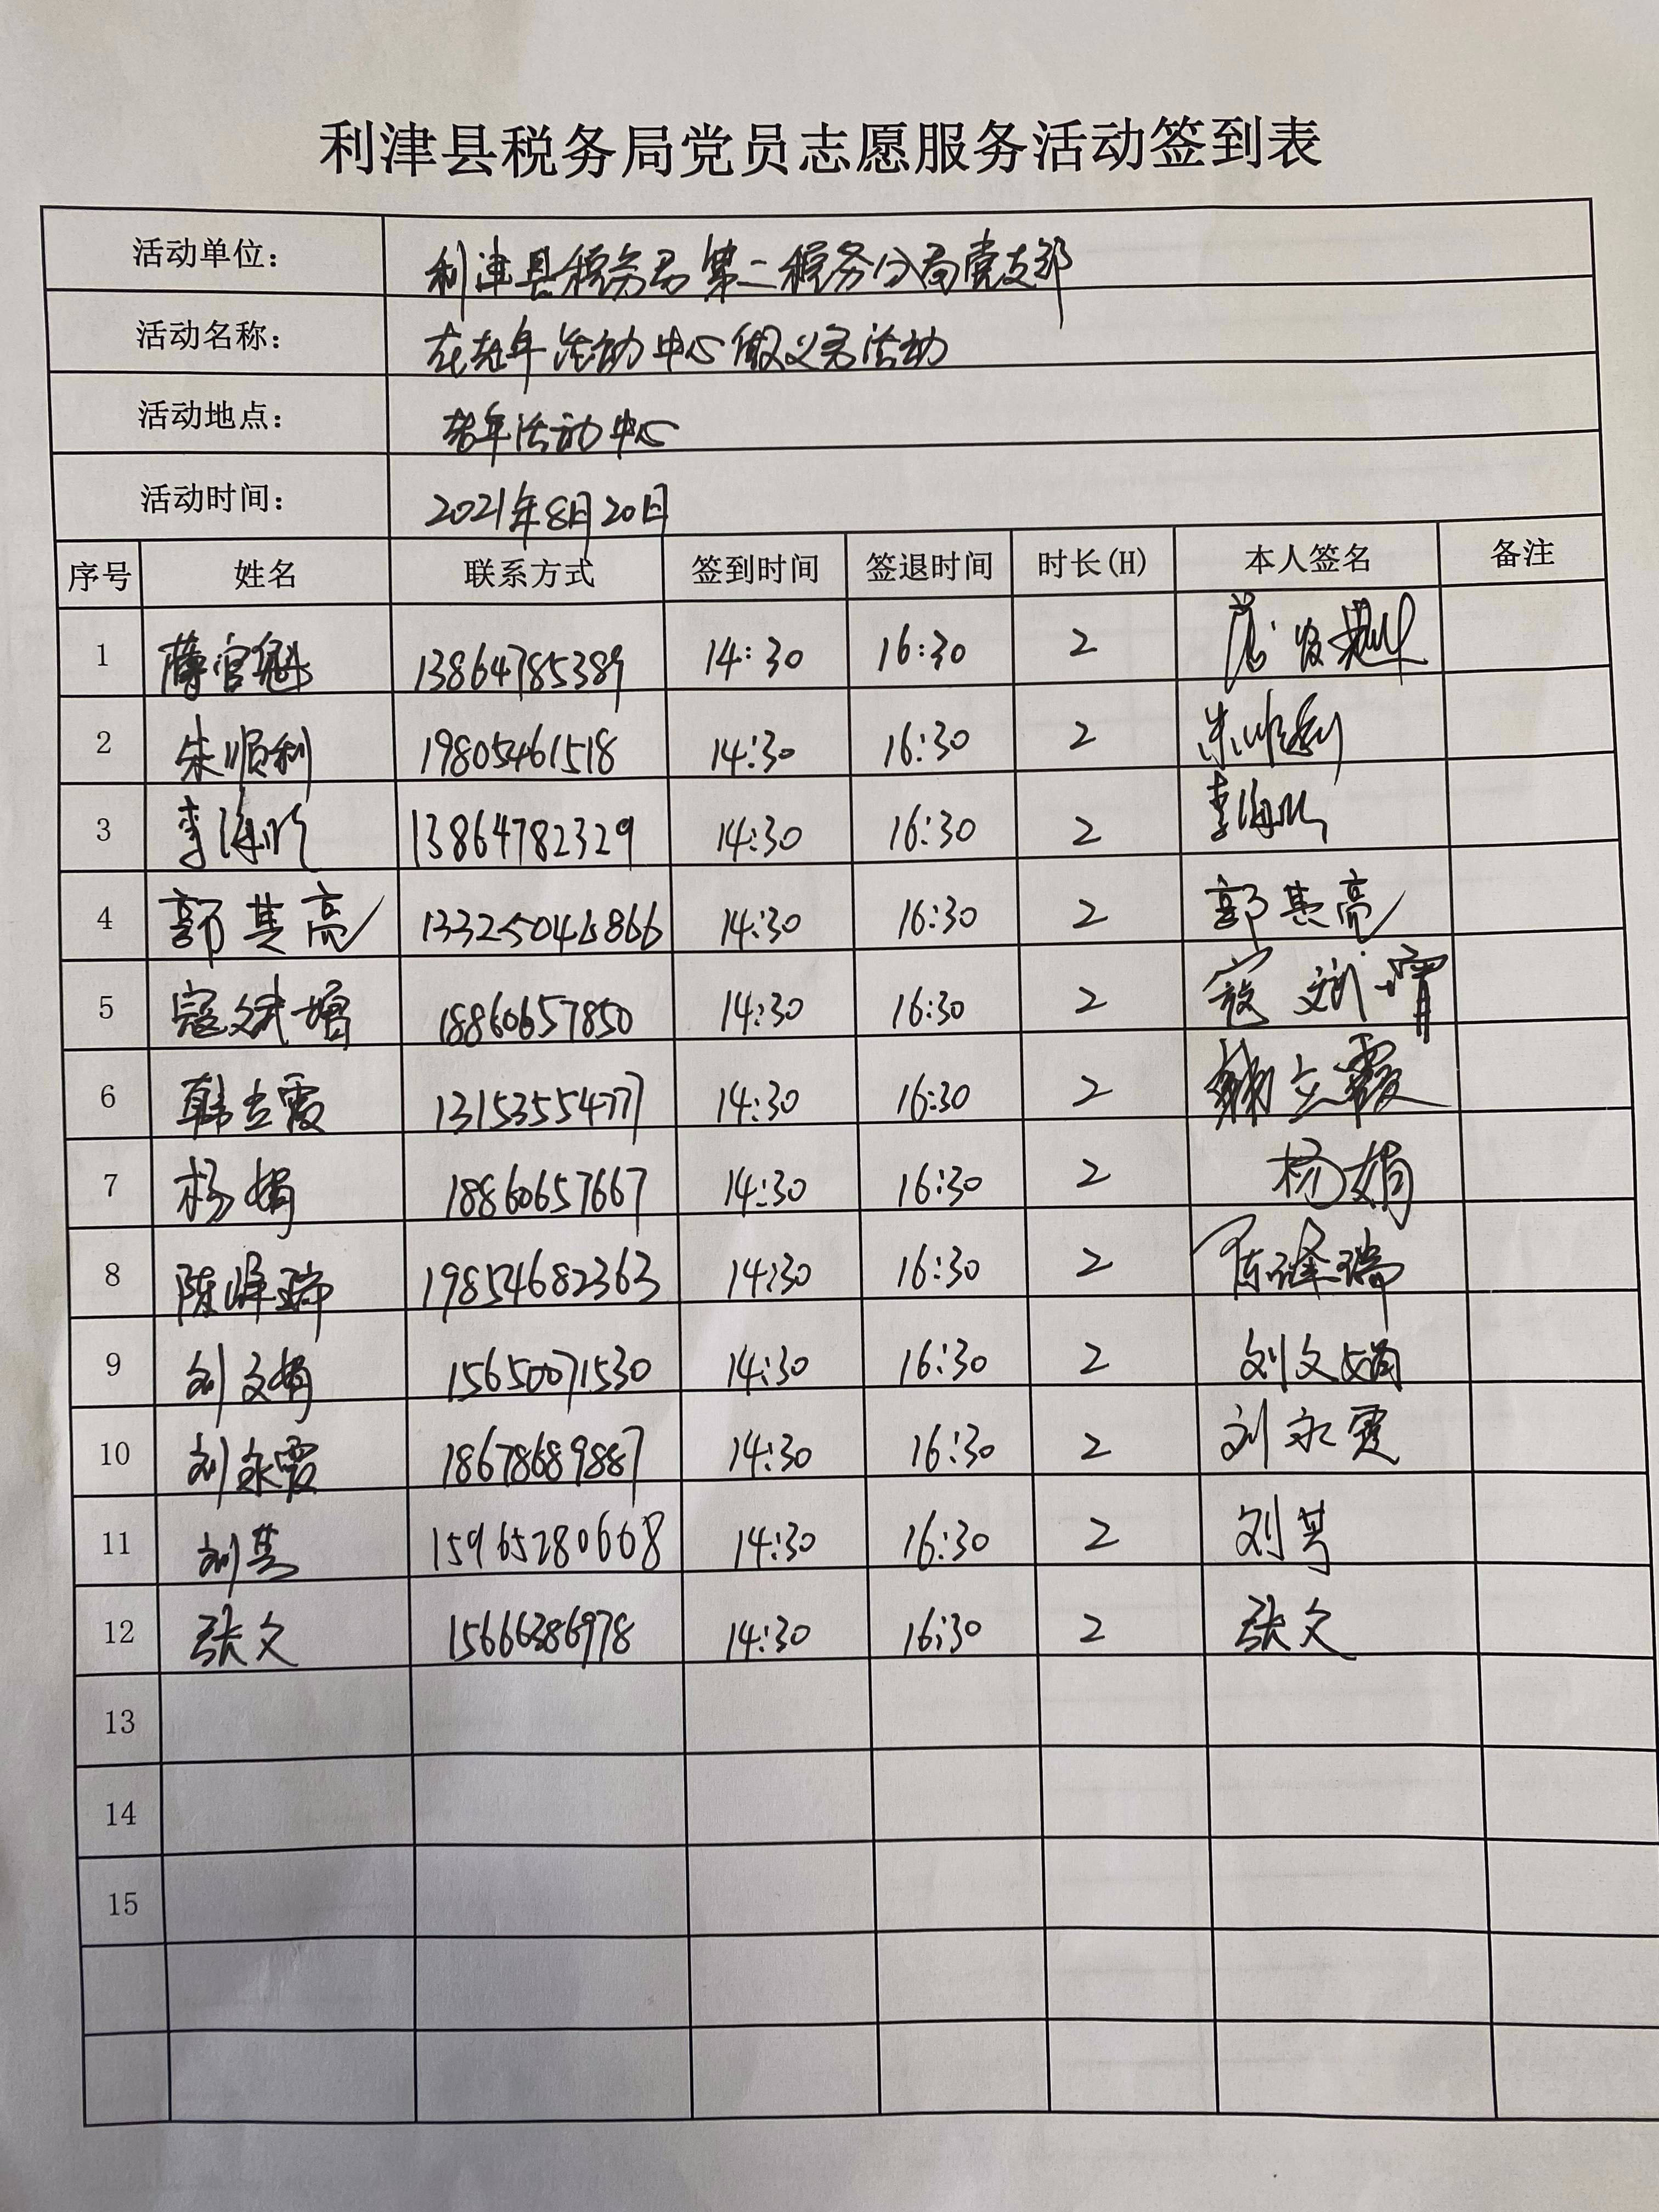 利津县税务局党员志愿服务活动签到表
活动单位： 利津县税务局第二税务分局党支部
活动名称： 在老年活动中心做义务活动
活动地点： 老年活动中心
活动时间： 2021年8月20日
序号 姓名 联系方式 签到时间 签退时间 时长(H) 本人签名 备注
1 薛官魁 13864785389 14:30 16:30 2
2 朱顺利 19805461518 14:30 16:30 2 朱顺利
3 李海 13864782329 14:30 16:30 2 李海
4 郭其亮 13325046866 14:30 16:30 2 郭其亮
5 寇斌 18860657850 14:30 16:30 2 寇
6 韩立霞 13153554777 14:30 16:30 2 韩立霞
7 杨娟 18860657667 14:30 16:30 2 杨娟
8 陈峰瑞 19854682363 14:30 16:30 2 陈峰瑞
9 刘文娟 15650071530 14:30 16:30 2 刘文娟
10 刘永霞 18678689887 14:30 16:30 2 刘永霞
11 刘 15965280668 14:30 16:30 2 刘
12 张文 15666386978 14:30 16:30 2 张文
13
14
15